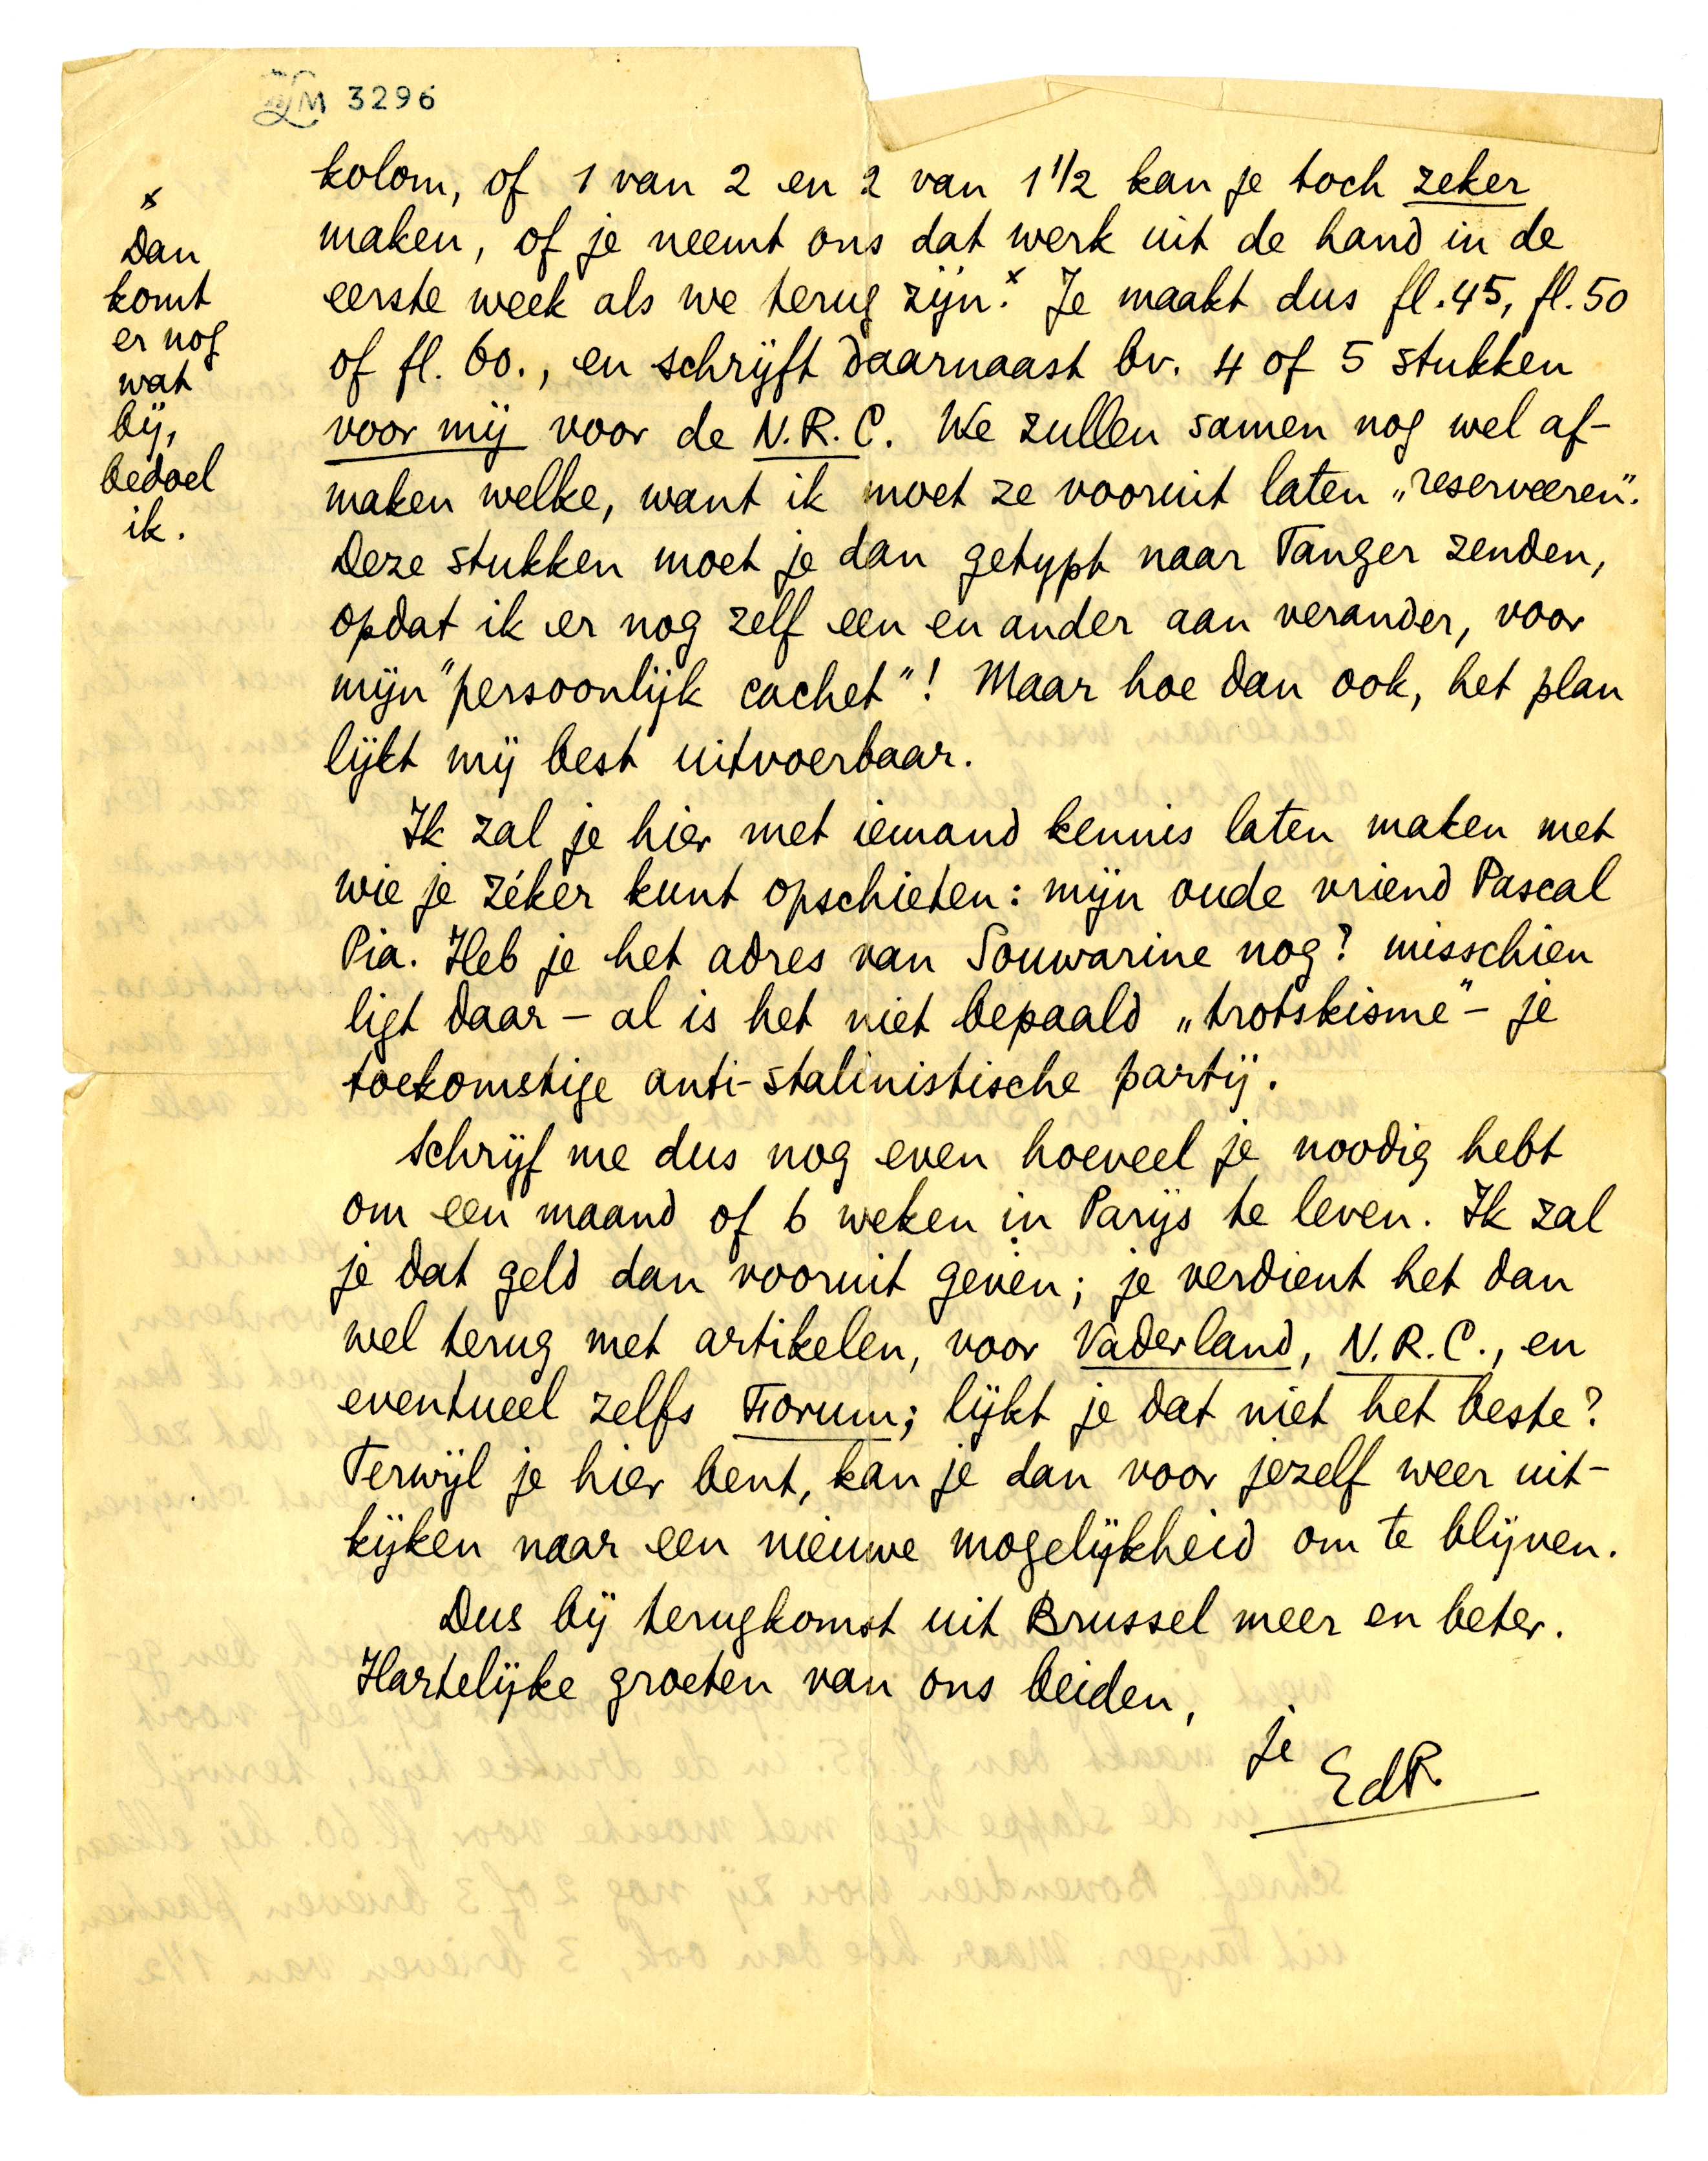 LM 3296
kolom, of 1 van 2 en 2 van 1 1/2 kan je toch zeker
maken, of je neemt ons dat werk uit de hand in de
eerste week als we terug zijn.x Je maakt dus fl. 45, fl. 50
of fl. 60., en schrijft daarnaast bv. 4 of 5 stukken
voor mij voor de N.R.C. We zullen samen nog wel af-
maken welke, want ik moet ze vooruit laten „reserveeren".
Deze stukken moet je dan getypt naar Tanger zenden,
opdat ik er nog zelf een en ander aan verander, voor
mijn "persoonlijk cachet"! Maar hoe dan ook, het plan
lijkt mij best uitvoerbaar.
Ik zal je hier met iemand kennis laten maken met
wie je zéker kunt opschieten: mijn oude vriend Pascal
Pia. Heb je het adres van Souwarine nog? misschien
ligt daar – al is het niet bepaald „trotskisme" – je
toekomstige anti-stalinistische partij.
Schrijf me dus nog even hoeveel je noodig hebt
om een maand of 6 weken in Parijs te leven. Ik zal
je dat geld dan vooruit geven; je verdient het dan
wel terug met artikelen, voor Vaderland, N.R.C., en
eventueel zelfs Forum; lijkt je dat niet het beste?
Terwijl je hier bent, kan je dan voor jezelf weer uit-
kijken naar een nieuwe mogelijkheid om te blijven.
Dus bij terugkomst uit Brussel meer en beter.
Hartelijke groeten van ons beiden,
je
EdP.
x
Dan
komt
er nog
wat
bij,
bedoel
ik.